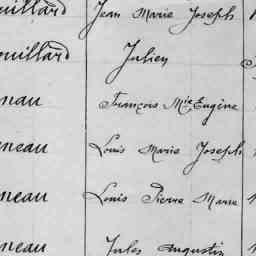 ouillard Jean Marie Joseph
ouillard Julien
neau François Mie Eugène
neau Louis Marie Joseph
neau Louis Pierre Marie
neau Jules Augustin